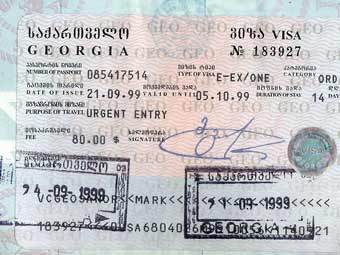 საქართველო ვიზა VISA
GEORGIA № 183927
პასპორტის ნომერი ვიზის ტიპი კატეგორია
NUMBER OF PASSPORT 085417514 TYPE OF VISA E-EX/ONE CATEGORY ORD
DATE 21.09.99 VALID UNTIL 05.10.99 DURATION OF STAY 14
მგზავრობის მიზანი
PURPOSE OF TRAVEL URGENT ENTRY
მოსაკრებელი ხელმოწერა
FEE 80.00 $ SIGNATURE
საქართველო
24 -09- 1999
საქართველო
-09- 1999
GEORGIA
MARK
183927